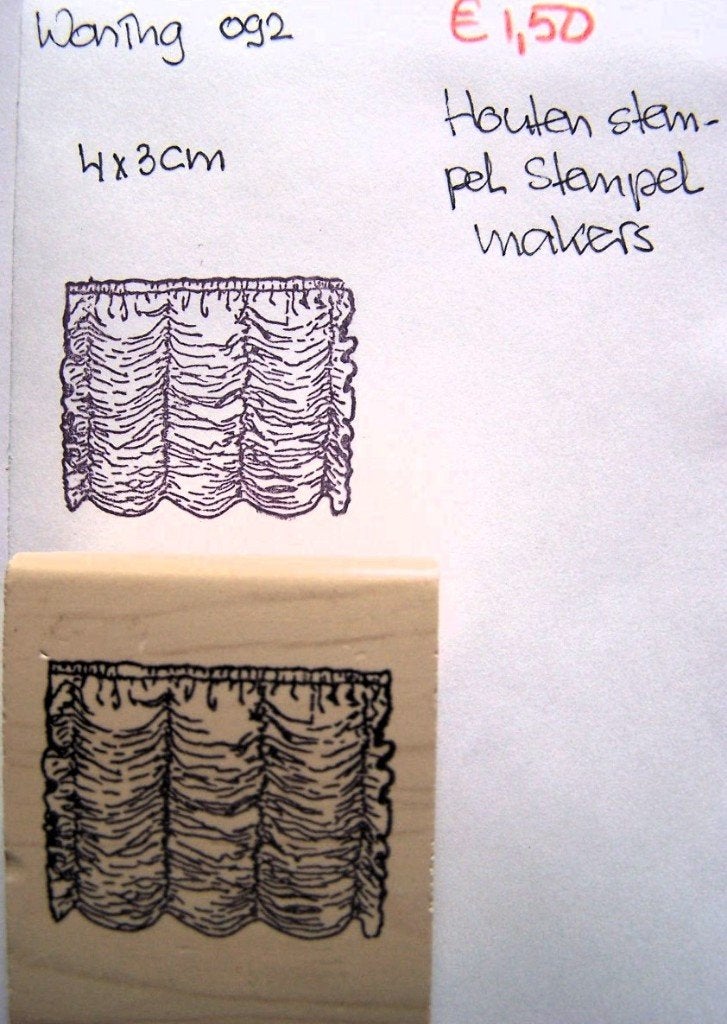 Woning 092
€ 1,50
4 x 3 cm
Houten stem-
pel Stempel
makers